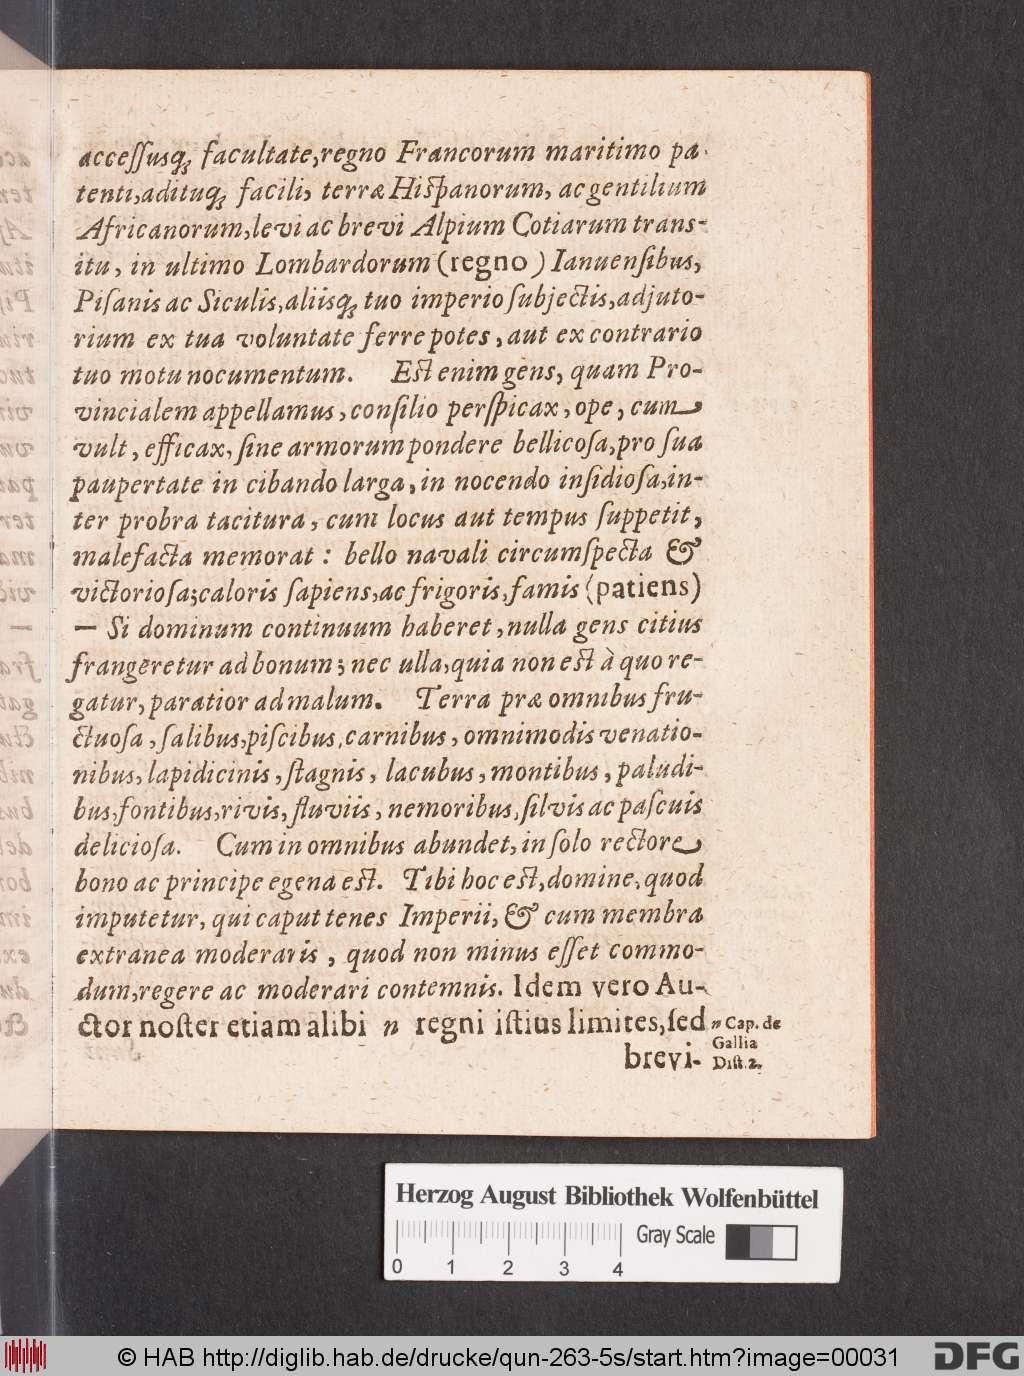 acceſſusq́; facultate, regno Francorum maritimo pa-
tenti, adituq́; facili, terræ Hiſpanorum, ac gentilium
Africanorum, levi ac brevi Alpium Cotiarum trans-
itu, in ultimo Lombardorum (regno) Ianuenſibus,
Piſanis ac Siculis, aliisq́; tuo imperio ſubjectis, adjuto-
rium ex tua voluntate ferre potes, aut ex contrario
tuo motu nocumentum. Eſt enim gens, quam Pro-
vincialem appellamus, conſilio perſpicax, ope, cum
vult, efficax, ſine armorum pondere bellicoſa, pro ſua
paupertate in cibando larga, in nocendo inſidioſa, in-
ter probra tacitura, cum locus aut tempus ſuppetit,
malefacta memorat: bello navali circumſpecta &
victorioſa; caloris ſapiens, ac frigoris, famis (patiens)
— Si dominum continuum haberet, nulla gens citius
frangeretur ad bonum; nec ulla, quia non eſt à quo re-
gatur, paratior ad malum. Terra præ omnibus fru-
ctuoſa, ſalibus, piſcibus, carnibus, omnimodis venatio-
nibus, lapidicinis, ſtagnis, lacubus, montibus, paludi-
bus, fontibus, rivis, fluviis, nemoribus, ſilvis ac paſcuis
delicioſa. Cum in omnibus abundet, in ſolo rectore
bono ac principe egena eſt. Tibi hoc eſt, domine, quod
imputetur, qui caput tenes Imperii, & cum membra
extranea moderaris, quod non minus eſſet commo-
dum, regere ac moderari contemnis. Idem vero Au-
ctor noſter etiam alibi n regni iſtius limites, ſed
n Cap. de
Gallia
Diſt. 2.
brevi-
Herzog August Bibliothek Wolfenbüttel
Gray Scale
0 1 2 3 4
© HAB http://diglib.hab.de/drucke/qun-263-5s/start.htm?image=00031
DFG